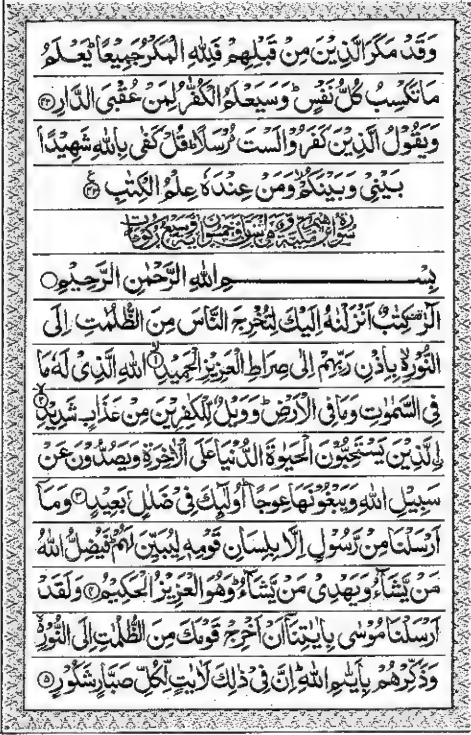 وَقَدْ مَكَرَ الَّذِيْنَ مِنْ قَبْلِهِمْ فَلِلّٰهِ الْمَكْرُ جَمِيْعًا ؕ يَعْلَمُ
مَا تَكْسِبُ كُلُّ نَفْسٍ ؕ وَسَيَعْلَمُ الْكُفّٰرُ لِمَنْ عُقْبَى الدَّارِ ﴿۴۲﴾
وَيَقُوْلُ الَّذِيْنَ كَفَرُوْا لَسْتَ مُرْسَلًا ؕ قُلْ كَفٰى بِاللّٰهِ شَهِيْدًاۢ
بَيْنِيْ وَبَيْنَكُمْ ۙ وَمَنْ عِنْدَهٗ عِلْمُ الْكِتٰبِ ﴿۴۳﴾
بِسْمِ اللّٰهِ الرَّحْمٰنِ الرَّحِيْمِ
الٓرٰ ۟ كِتٰبٌ اَنْزَلْنٰهُ اِلَيْكَ لِتُخْرِجَ النَّاسَ مِنَ الظُّلُمٰتِ اِلَى
النُّوْرِ ۙ۬ بِاِذْنِ رَبِّهِمْ اِلٰى صِرَاطِ الْعَزِيْزِ الْحَمِيْدِ ﴿۱﴾ اللّٰهِ الَّذِيْ لَهٗ مَا
فِى السَّمٰوٰتِ وَمَا فِى الْاَرْضِ ؕ وَوَيْلٌ لِّلْكٰفِرِيْنَ مِنْ عَذَابٍ شَدِيْدِ ﴿۲﴾
ۨالَّذِيْنَ يَسْتَحِبُّوْنَ الْحَيٰوةَ الدُّنْيَا عَلَى الْاٰخِرَةِ وَيَصُدُّوْنَ عَنْ
سَبِيْلِ اللّٰهِ وَيَبْغُوْنَهَا عِوَجًا ؕ اُولٰٓئِكَ فِيْ ضَلٰلٍۭ بَعِيْدٍ ﴿۳﴾ وَمَاۤ
اَرْسَلْنَا مِنْ رَّسُوْلٍ اِلَّا بِلِسَانِ قَوْمِهٖ لِيُبَيِّنَ لَهُمْ ؕ فَيُضِلُّ اللّٰهُ
مَنْ يَّشَآءُ وَيَهْدِيْ مَنْ يَّشَآءُ ؕ وَهُوَ الْعَزِيْزُ الْحَكِيْمُ ﴿۴﴾ وَلَقَدْ
اَرْسَلْنَا مُوْسٰى بِاٰيٰتِنَاۤ اَنْ اَخْرِجْ قَوْمَكَ مِنَ الظُّلُمٰتِ اِلَى النُّوْرِ ۙ۬
وَذَكِّرْهُمْ بِاَيّٰىمِ اللّٰهِ ؕ اِنَّ فِيْ ذٰلِكَ لَاٰيٰتٍ لِّكُلِّ صَبَّارٍ شَكُوْرٍ ﴿۵﴾